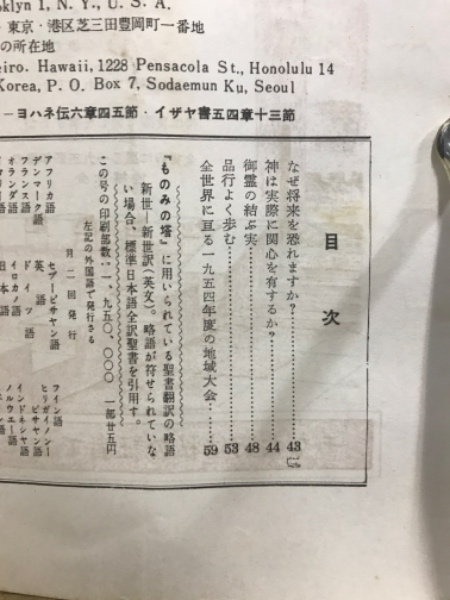 oklyn 1, N. Y., U. S. A.
東京・港区芝三田豊岡町一番地
の所在地
eiro. Hawaii, 1228 Pensacola St., Honolulu 14
Korea, P. O. Box 7, Sodaemun Ku, Seoul
ーヨハネ伝六章四五節・イザヤ書五四章十三節
目次
なぜ将来を恐れますか?…………43
神は実際に関心を有するか?…………44
御霊の結ぶ実…………48
品行よく歩む…………53
全世界に亘る一九五四年度の地域大会…………59
『ものみの塔』に用いられている聖書翻訳の略語
新世―新世訳(英文)。略語が符せられていな
い場合、標準日本語全訳聖書を引用す。
この号の印刷部数:一、九五〇、〇〇〇 一部廿五円
左記の外国語で発行さる
月二回発行
アフリカ語
デンマーク語
フランス語
オランダ語
セブー・ビサヤン語
英語
ドイツ語
イロカノ語
日本語
フイン語
ヒリガイノン・
ビサヤン語
インドネシヤ語
ノルウエー語